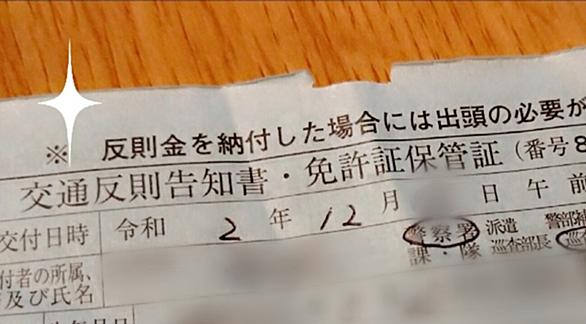 ※ 反則金を納付した場合には出頭の必要が
交通反則告知書・免許証保管証(番号8
交付日時 令和 2 年 12 月 日 午前
警察署 派遣 警部補
課・隊 巡査部長 巡
付者の所属、
及び氏名